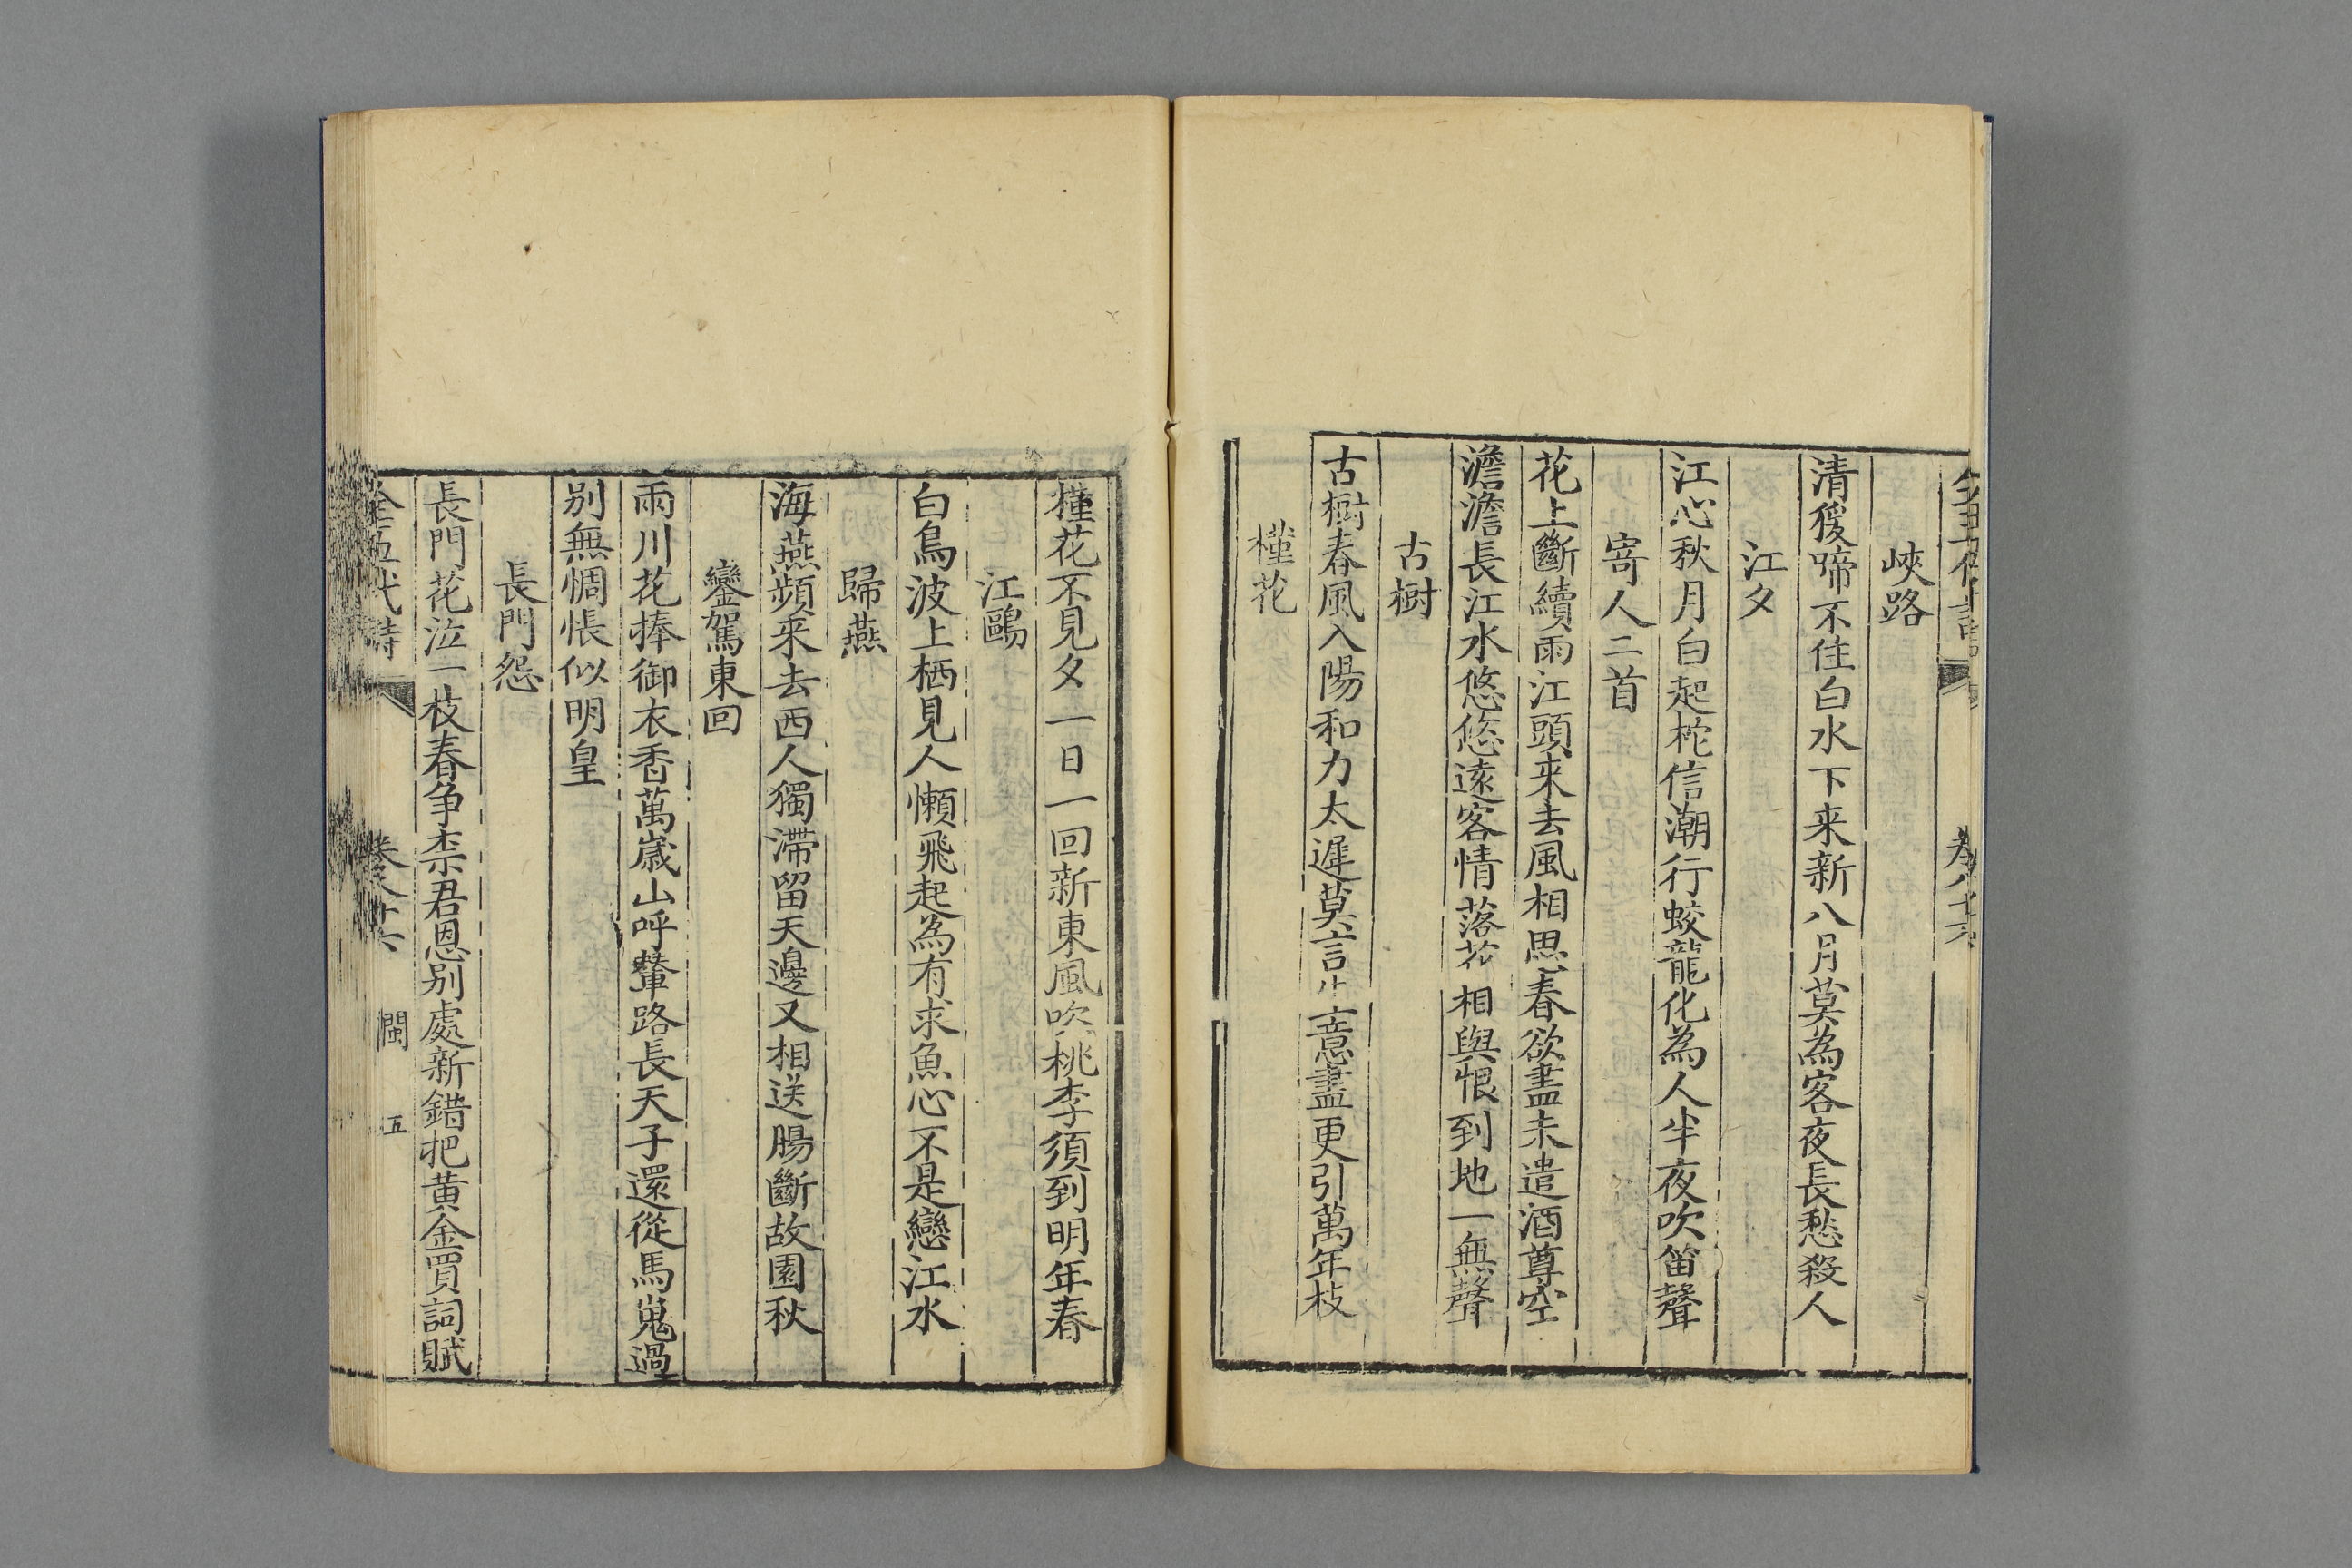 峽路
清猨啼不住白水下来新八月莫為客夜長愁殺人
江夕
江心秋月白起柁信潮行蛟龍化為人半夜吹笛聲
寄人二首
花上斷續雨江頭来去風相思春欲盡未遣酒尊空
澹澹長江水悠悠遠客情落花相與恨到地一無聲
古樹
古樹春風入陽和力太遲莫言生意盡更引萬年枝
槿花
槿花不見夕一日一回新東風吹桃李須到明年春
江鷗
白鳥波上栖見人懶飛起為有求魚心不是戀江水
歸燕
海燕頻来去西人獨滯留天邊又相送腸斷故園秋
鑾駕東回
兩川花捧御衣香萬歲山呼輦路長天子還從馬嵬過
别無惆悵似明皇
長門怨
長門花泣一枝春争柰君恩别處新錯把黄金買詞賦
全五代詩 卷八十六 閩 五